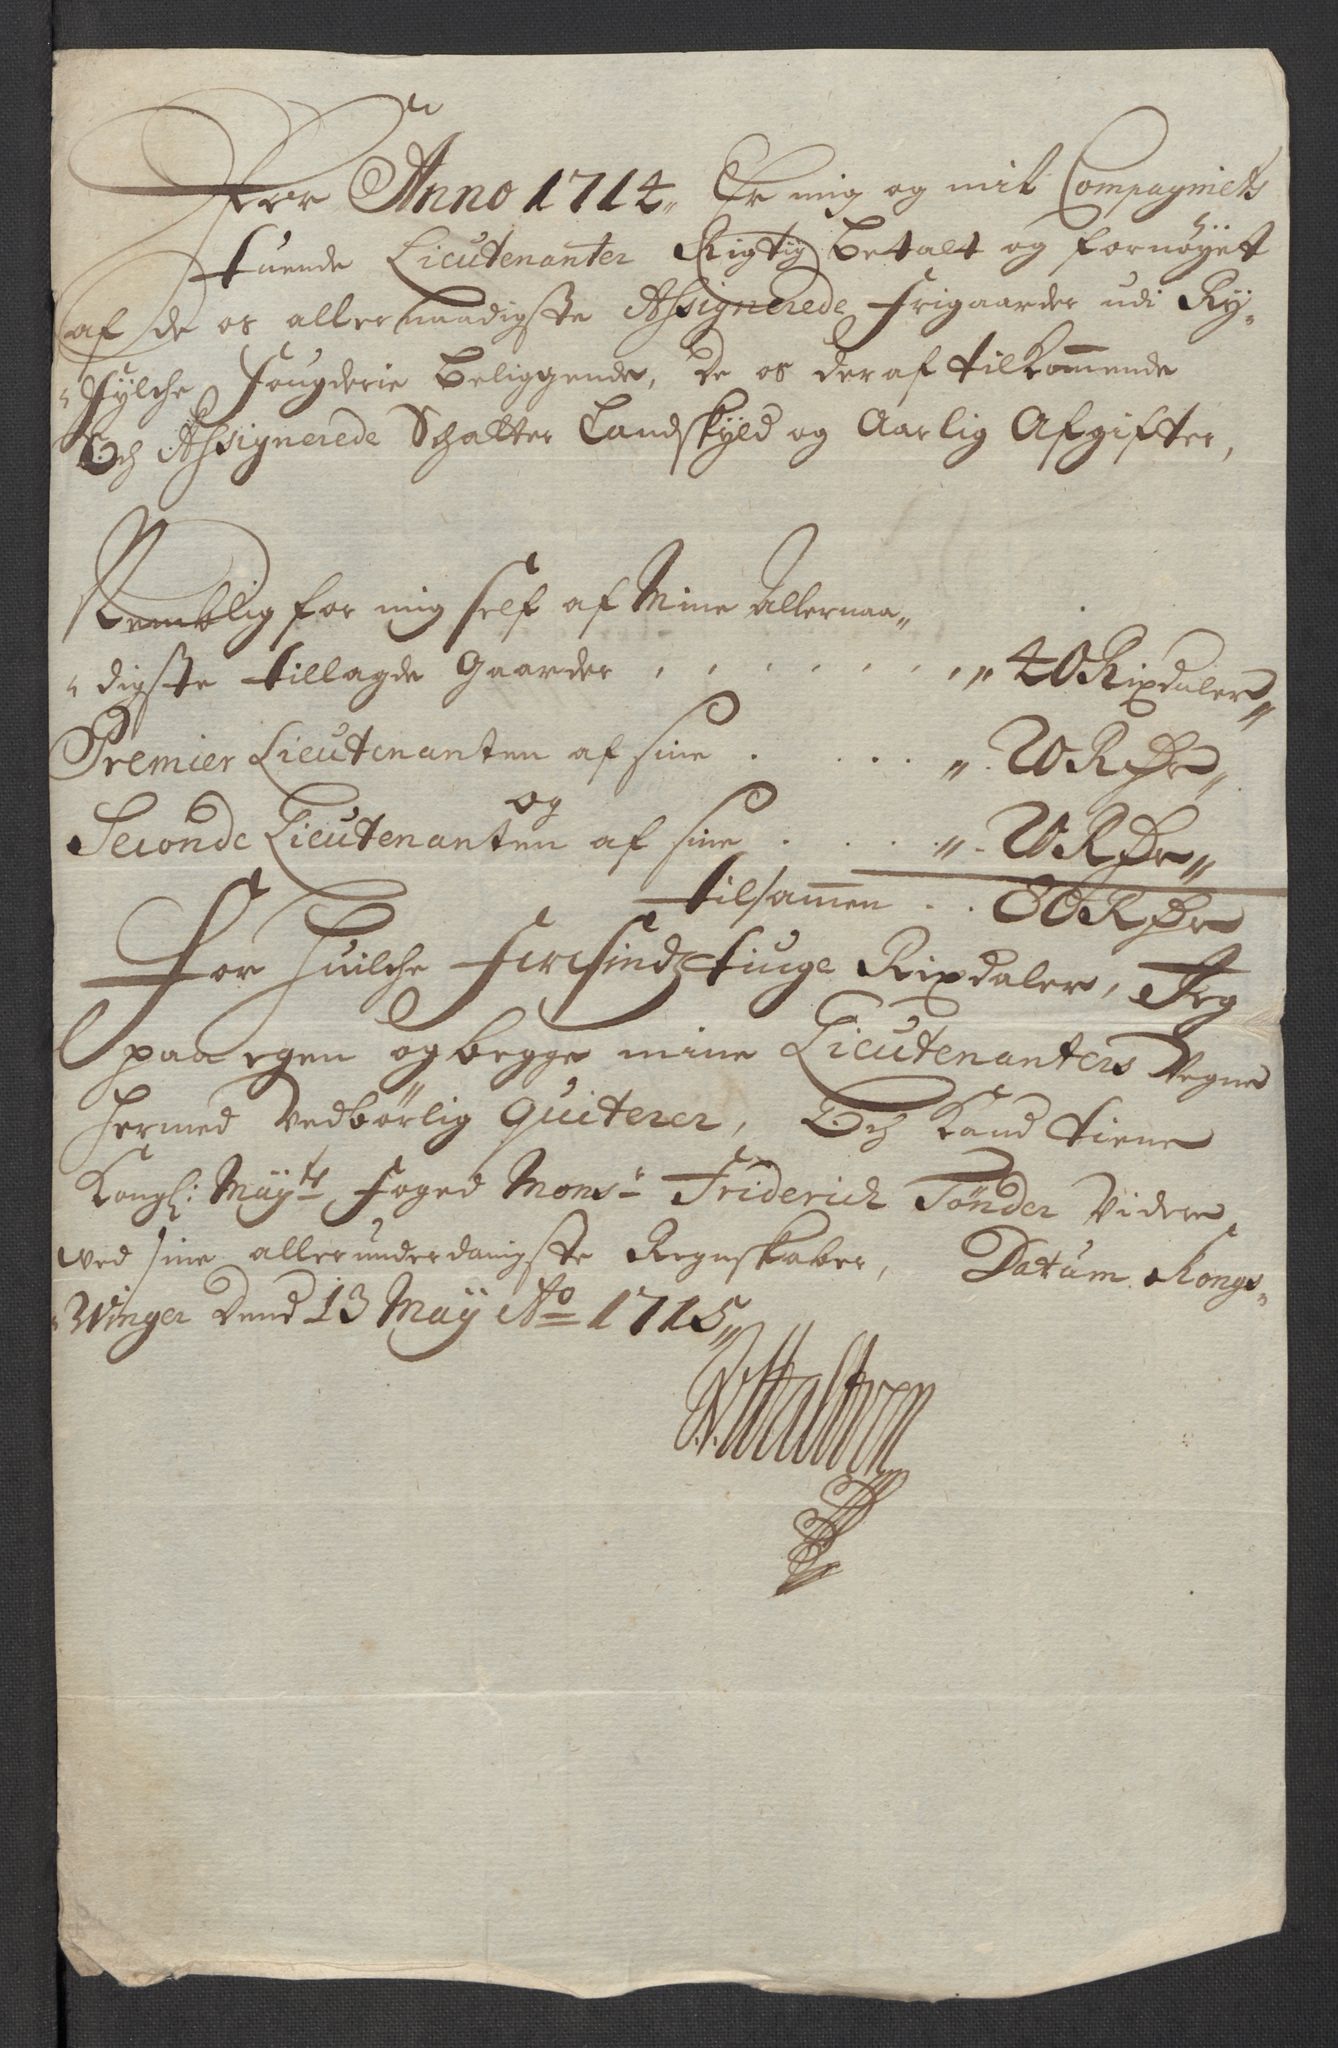 For Anno 1714„ Er mig og mit Compagniets
tuende Lieutenanter Rigtig betalt og fornøyet
af de os allernaadigste Assignerede frigaarder udi Ry„
„fylche fougderie beliggende, de os deraf tilkom̅ende
Och Assignerede Schatter Landskyld og Aarlig Afgifter,
Nemblig for mig self af Mine Allernaa„
„digste tillagde Gaarder . . . . . . . „ 40 Rixdaler„
Premier Lieutenanten af sine . . . . . „ 20 R Dr„
og
Seconde Lieutenanten af sine . . . . „ 20 R Dr„
tilsam̅en . . 80 R Dr
For huilche firesindztiuge Rixdaler, Jeg
paa egen og begge mine Lieutenanters Vegne
hermed vedbörlig quiterer, Och kand tiene
Kongl: Maÿts foged Monsr Friderich Tønder videre
ved sine allerunderdanigste Regnskaber, Datum Kongs„
„Winger dend 13 Maÿ Ao 1715„